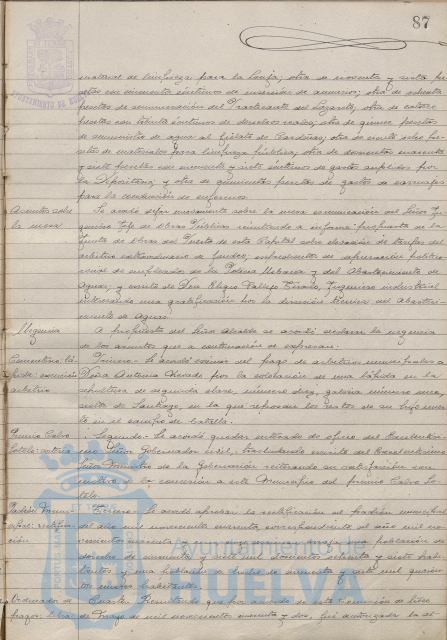 87
material de limpieza para la Lonja; otra de noventa y seis pe-
setas con cincuenta céntimos de inserción de anuncios; otra de ochenta
pesetas de remuneración del Practicante del Lazareto, otra de catorce
pesetas con treinta céntimos de derechos reales; otra de quince pesetas
de suministro de agua al Fielato de Cardeñas; otra de ciento ocho pe-
setas de materiales para limpieza pública; otra de doscientas cuarenta
y siete pesetas con noventa y siete céntimos de gastos suplidos por
la Depositaría; y otra de quinientas pesetas de gastos de carruajes
para la conducción de enfermos.
Asuntos sobre
la mesa
Se acordó dejar nuevamente sobre la mesa comunicación del Señor In-
geniero Jefe de Obras Públicas remitiendo a informe propuesta de la
Junta de Obras del Puerto de esta Capital sobre elevación de tarifas del
arbitrio extraordinario de fondeo; expedientes de depuración político
social de empleados de la Policía Urbana y del Abastecimiento de
Aguas; y escrito de Don Eligio Vallejo Ingeniero industrial
interesando una gratificación por la dirección técnica del abasteci-
miento de aguas.
Urgencia
A propuesta del Señor Alcalde se acordó declarar la urgencia
de los asuntos que a continuación se expresan:
Cementerio: lá-
pida: exención
arbitrio
Primero.- Se acordó eximir del pago de arbitrios municipales a
Doña Antonia Nevado por la colocación de una lápida en la
sepultura de segunda clase, número diez, galería número once,
patio de Santiago, en la que reposan los restos de su hijo muer-
to en el campo de batalla.
Premio Calvo
Sotelo: oficio
Segundo.- Se acordó quedar enterado de oficio del Excelentísi-
mo Señor Gobernador civil, trasladando escrito del Excelentísimo
Señor Ministro de la Gobernación reiterando su satisfacción con
motivo de la concesión a este Municipio del premio Calvo So-
telo.
Padrón muni-
cipal: rectifica-
ción
Tercero.- Se acordó aprobar la rectificación del padrón municipal
del año mil novecientos cuarenta, correspondiente al año mil no-
vecientos cuarenta y uno, que arroja una población de
derecho de cincuenta y siete mil doscientos ochenta y siete habi-
tantes, y una población de hecho de cincuenta y siete mil quinien-
tos habitantes.
Cuarto.- Resultando que por acuerdo de esta Comisión de trece
de Mayo de mil novecientos cuarenta y dos, fué autorizada la se-
Ayuntamiento de
HUELVA